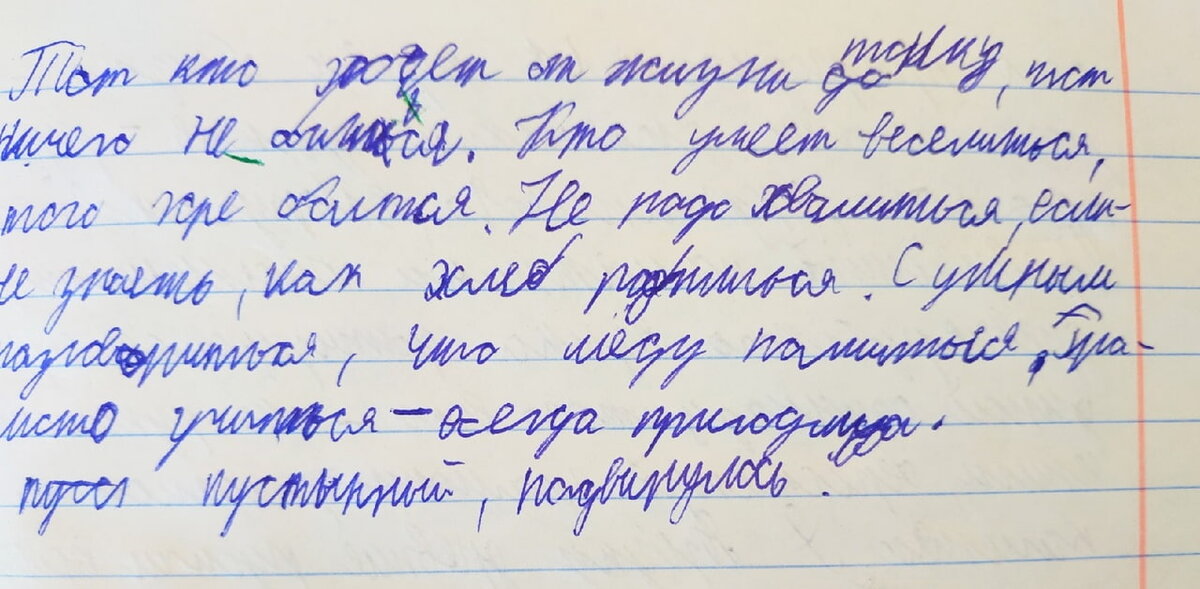 Тот кто ходет от жизни танку, тот
ничего не боится. Кто умеет веселиться,
того хре боится. Не надо хвалиться, если
не знаеть, как хлеб родиться. С умным
разговориться, что меду напиться. Гра-
мсто учиться – всегда пригодица.
пустынный, надвинулось.